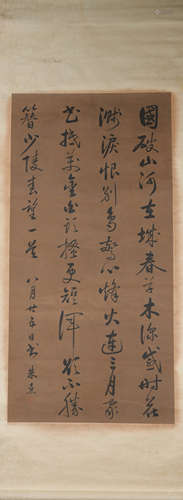 國破山河在城春草木深感時花
濺淚恨別鳥驚心烽火連三月家
書抵萬金白頭搔更短渾欲不勝
簪少陵春望一首 八月廿日書